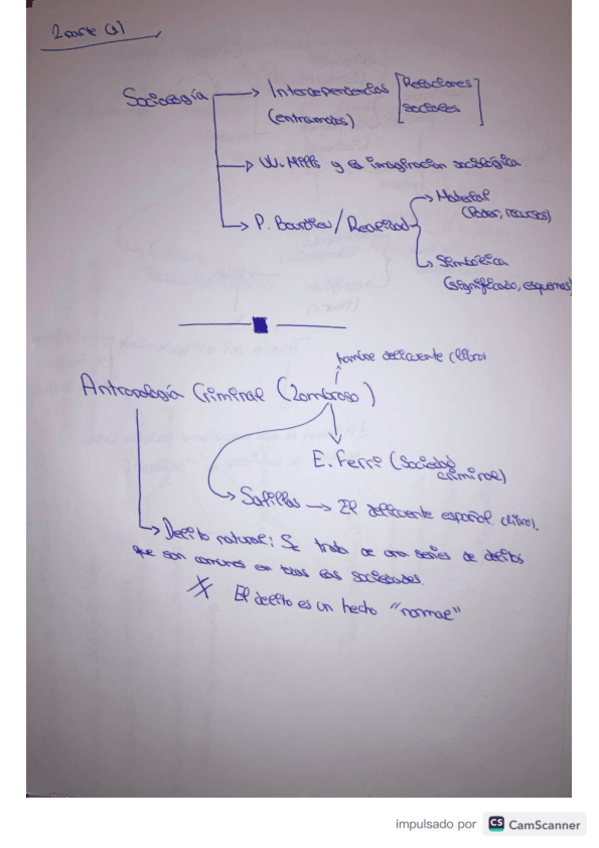 2 parte (1)
Sociología → Interdependencias [Relaciones
(entramados) sociales]
→ W. Mills y la imaginacion sociológica
→ P. Bourdieu / Realidad → Material
(Poder, recursos)
→ Simbólica
(significado, esquemas)
hombre delicuente (libro)
Antropología Criminal (Lombroso)
E. Ferri (Sociedad
criminal)
→ Salillas → El delicuente español (libro).
→ Delito natural: Se trata de una series de delitos
que son comunes en todas las sociedades.
El delito es un hecho "normal"
impulsado por CS CamScanner